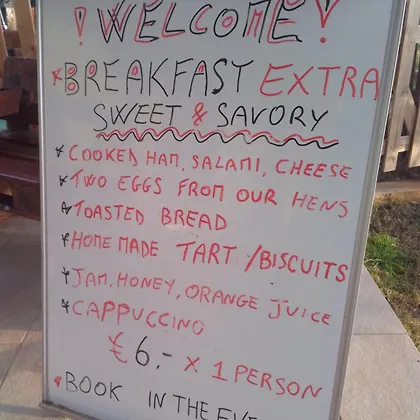 ! WELCOME!
*BREAKFAST EXTRA
SWEET & SAVORY
* COOKED HAM, SALAMI, CHEESE
* TWO EGGS FROM OUR HENS
* TOASTED BREAD
* HOME MADE TART / BISCUITS
* JAM, HONEY, ORANGE JUICE
* CAPPUCCINO
€ 6,- x 1 PERSON
* BOOK IN THE